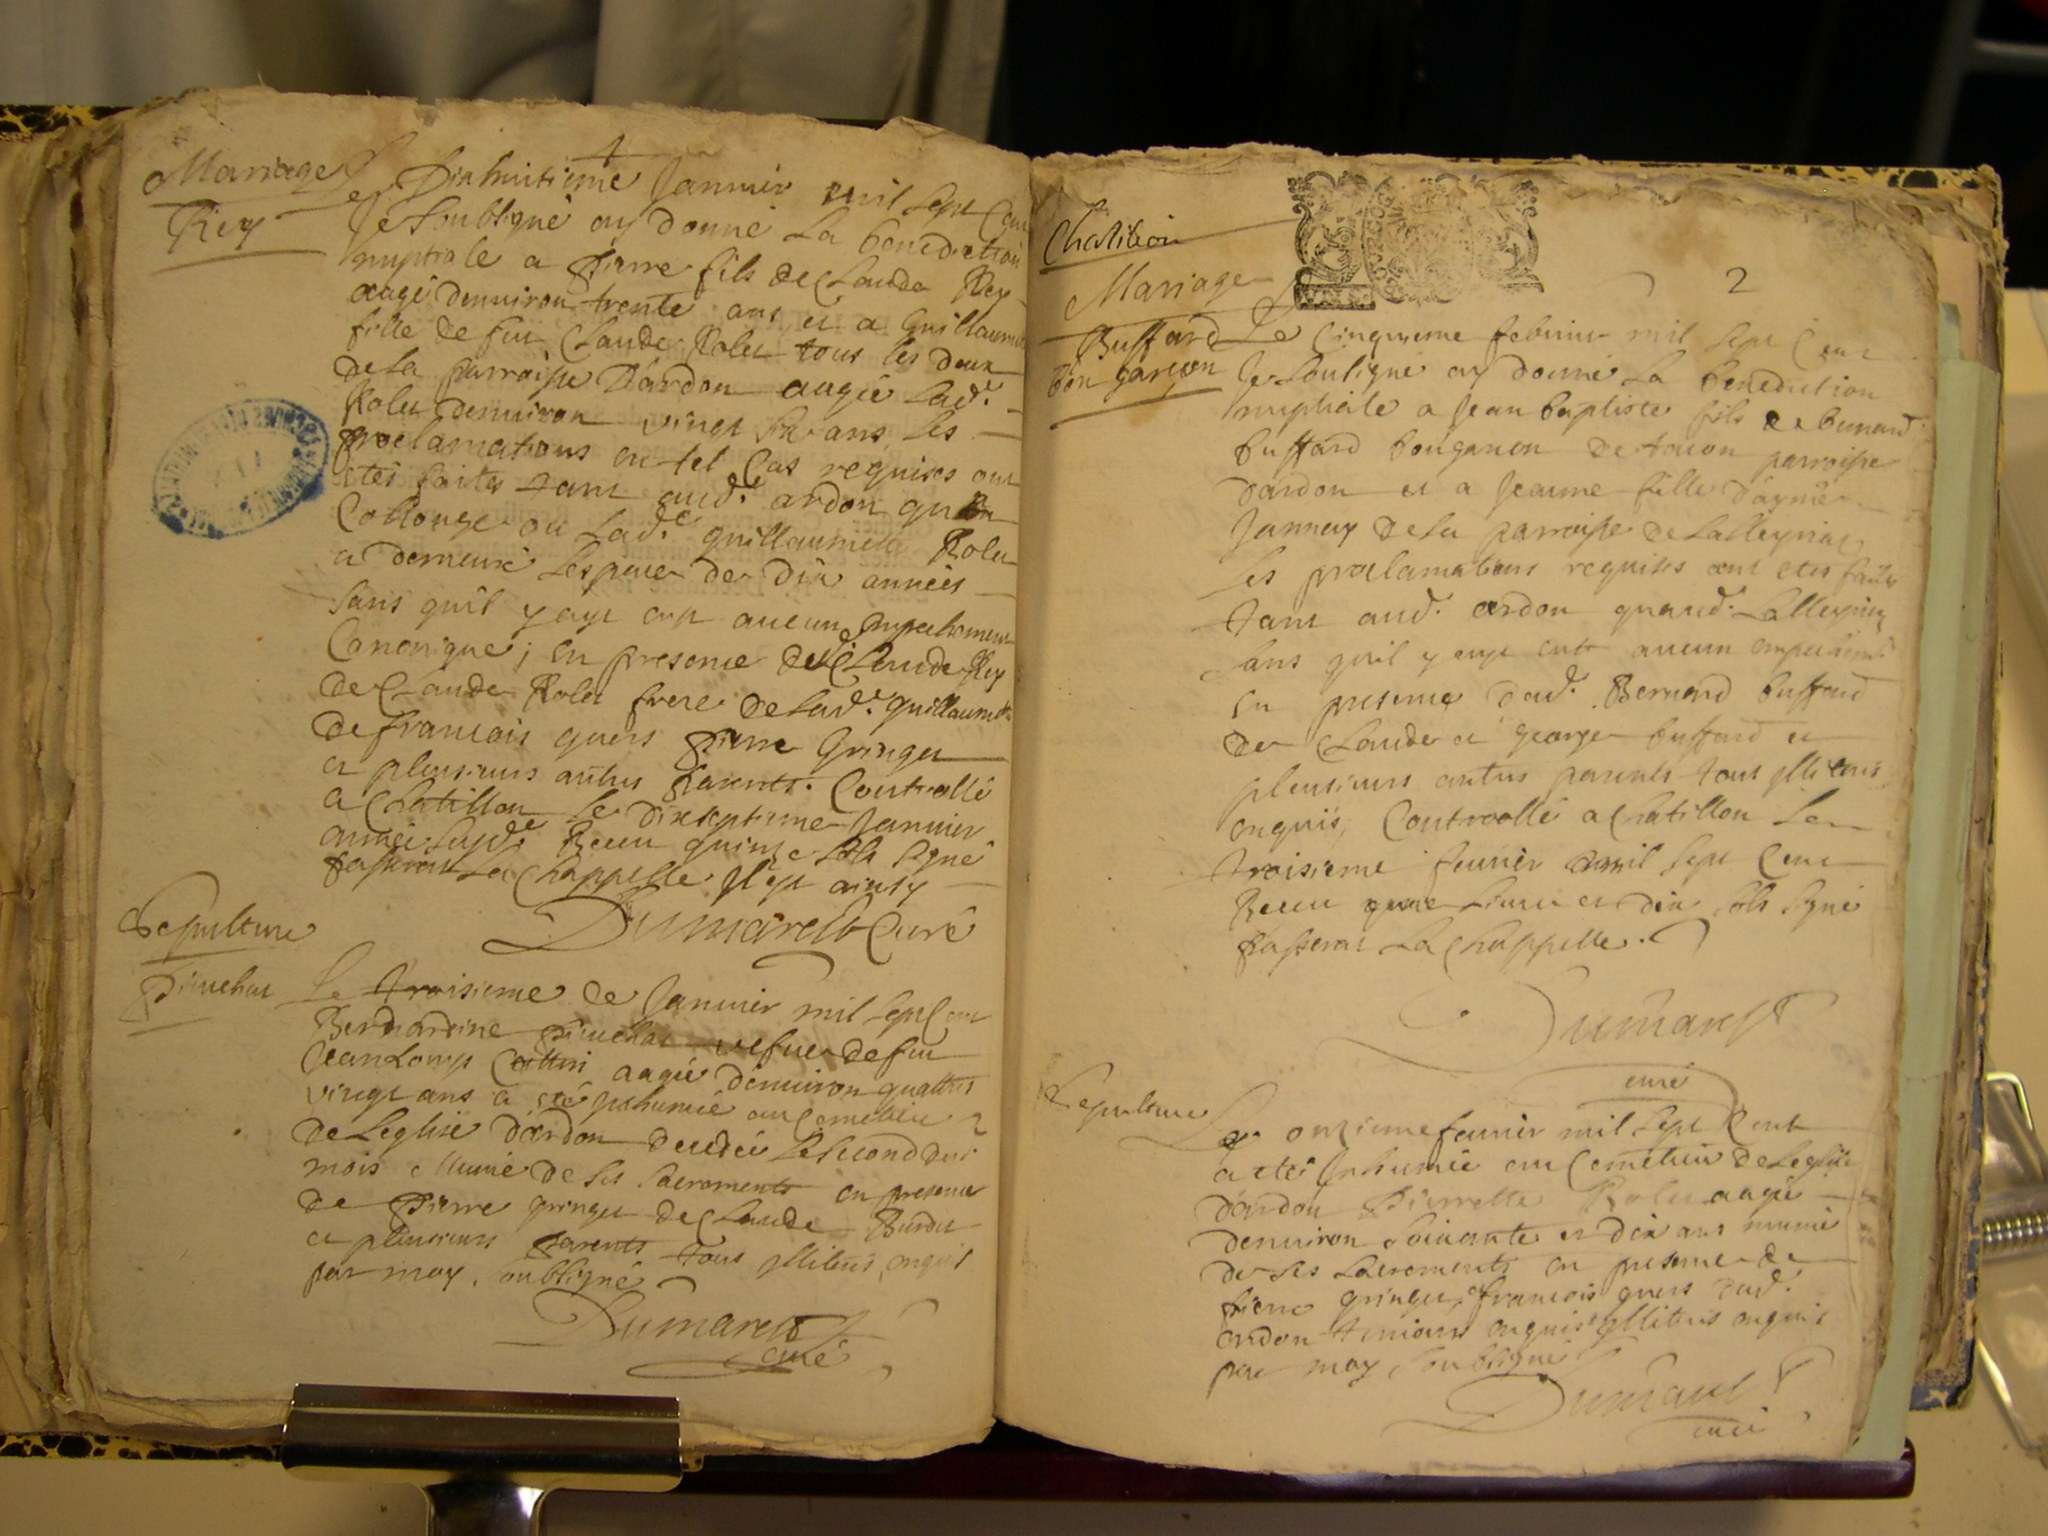 Mariage
Rey
Le Dixhuitieme Janvier mil sept Cent
Je soubsigné ay donné La benediction
nuptiale a Pierre fils de Claude Rey
aagé denuiron trente ans et a Guillaumette
fille de feu Claude Rolet tous les deux
de la parroisse D'ardon augée lad.e
Rolet denuiron vingt six ans les
proclamations en tel Cas requises ont
étés faites tant aud.t ardon qu'
Collonge ou Lad.e guillaumette Rolet
a demeuré Lespace de dix années
sans quil y aye eut aucun Empechement
Canonique; en presence dud. Claude Rey
de Claude Rolet frere de lad.e guillaumette
de francois quers pierre Gringet
et plusieurs autres parents. Controllé
a Chatillon le dixseptieme Janvier
année susd.e Receu quinze sols signé
passerat La Chappelle Il est ainsy
Dumarest Curé
Sepulture
Piuchat
Le troisieme de Janvier mil sept Cent
Bernardine Piuchat vefue de feu
Jean Louys aagée denuiron quattres
vingt ans a eté inhumée au Cemetiere
de Leglise d'ardon decedée le second dud.
mois Munie de ses sacrements en presence
de Pierre gringet de Claude Burdet
et plusieurs parents tous illiterés enquis
par moy soubsigné
Dumarest
curé
Chatillon
2
Mariage
Buffard
bon garçon
Le Cinquieme febvrier mil sept Cent
Je soubsigné ay donné La benediction
nuptiale a Jean baptiste fils de bernard
buffard bonganson de tacon parroisse
d'ardon et a Jeanne fille d'aymé
Jannay de la parroisse de Lalleyriat
les proclamations requises ont etes faites
tant aud.t ardon quaud.t Lalleyriat
sans quil y aye eut aucun empechem.t
en presence dud.t Bernard buffard
de Claude et george buffard et
plusieurs autres parents tous illiterés
enquis, Controollé a Chatillon Le
troisieme feurier mil sept Cent
Receu livre et dix sols signé
passerat La Chappelle.
Dumarest
curé
Sepulture
Le onzieme feurier mil sept Cent
a etéé Inhumée au Cemetiere de Leglise
d'ardon Pierrette Rolet aagée
denuiron soixante et dix ans munie
de ses sacrements en presence de
pierre gringet, francois quers dud.t
ardon temoins enquis illiterés enquis
par moy soubsigné
Dumarest
curé